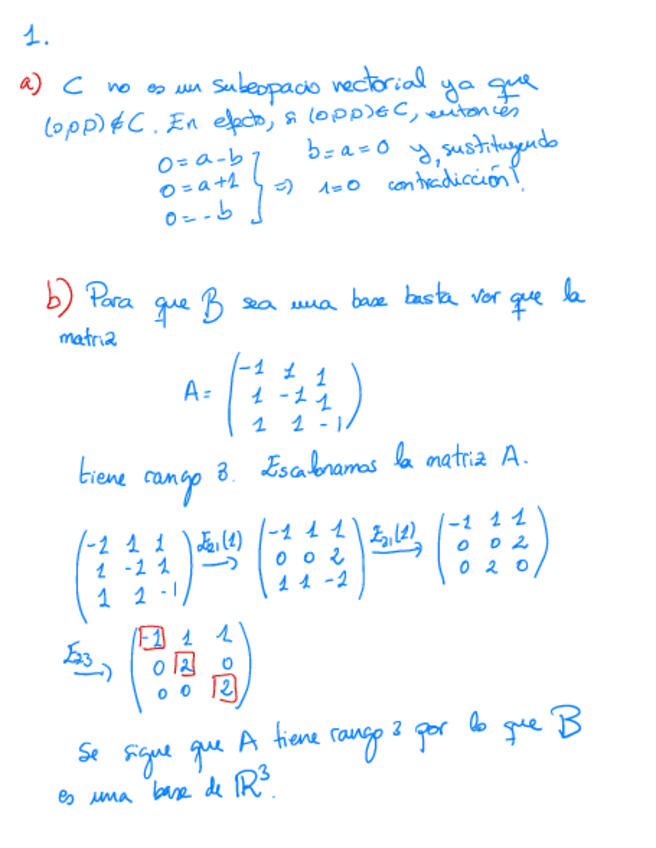 1.
a) C no es un subespacio vectorial ya que
(0,0,0) ∉ C. En efecto, si (0,0,0) ∈ C, entonces
0 = a - b
0 = a + 1
0 = - b
⇒ b = a = 0 y, sustituyendo
1 = 0 contradicción!
b) Para que B sea una base basta ver que la
matriz
A = ( -1 1 1
1 -1 1
1 1 -1 )
tiene rango 3. Escalonamos la matriz A.
( -1 1 1
1 -1 1
1 1 -1 ) E21(1) → ( -1 1 1
0 0 2
1 1 -1 ) E31(1) → ( -1 1 1
0 0 2
0 2 0 )
E23 → ( -1 1 1
0 2 0
0 0 2 )
Se sigue que A tiene rango 3 por lo que B
es una base de ℝ³.